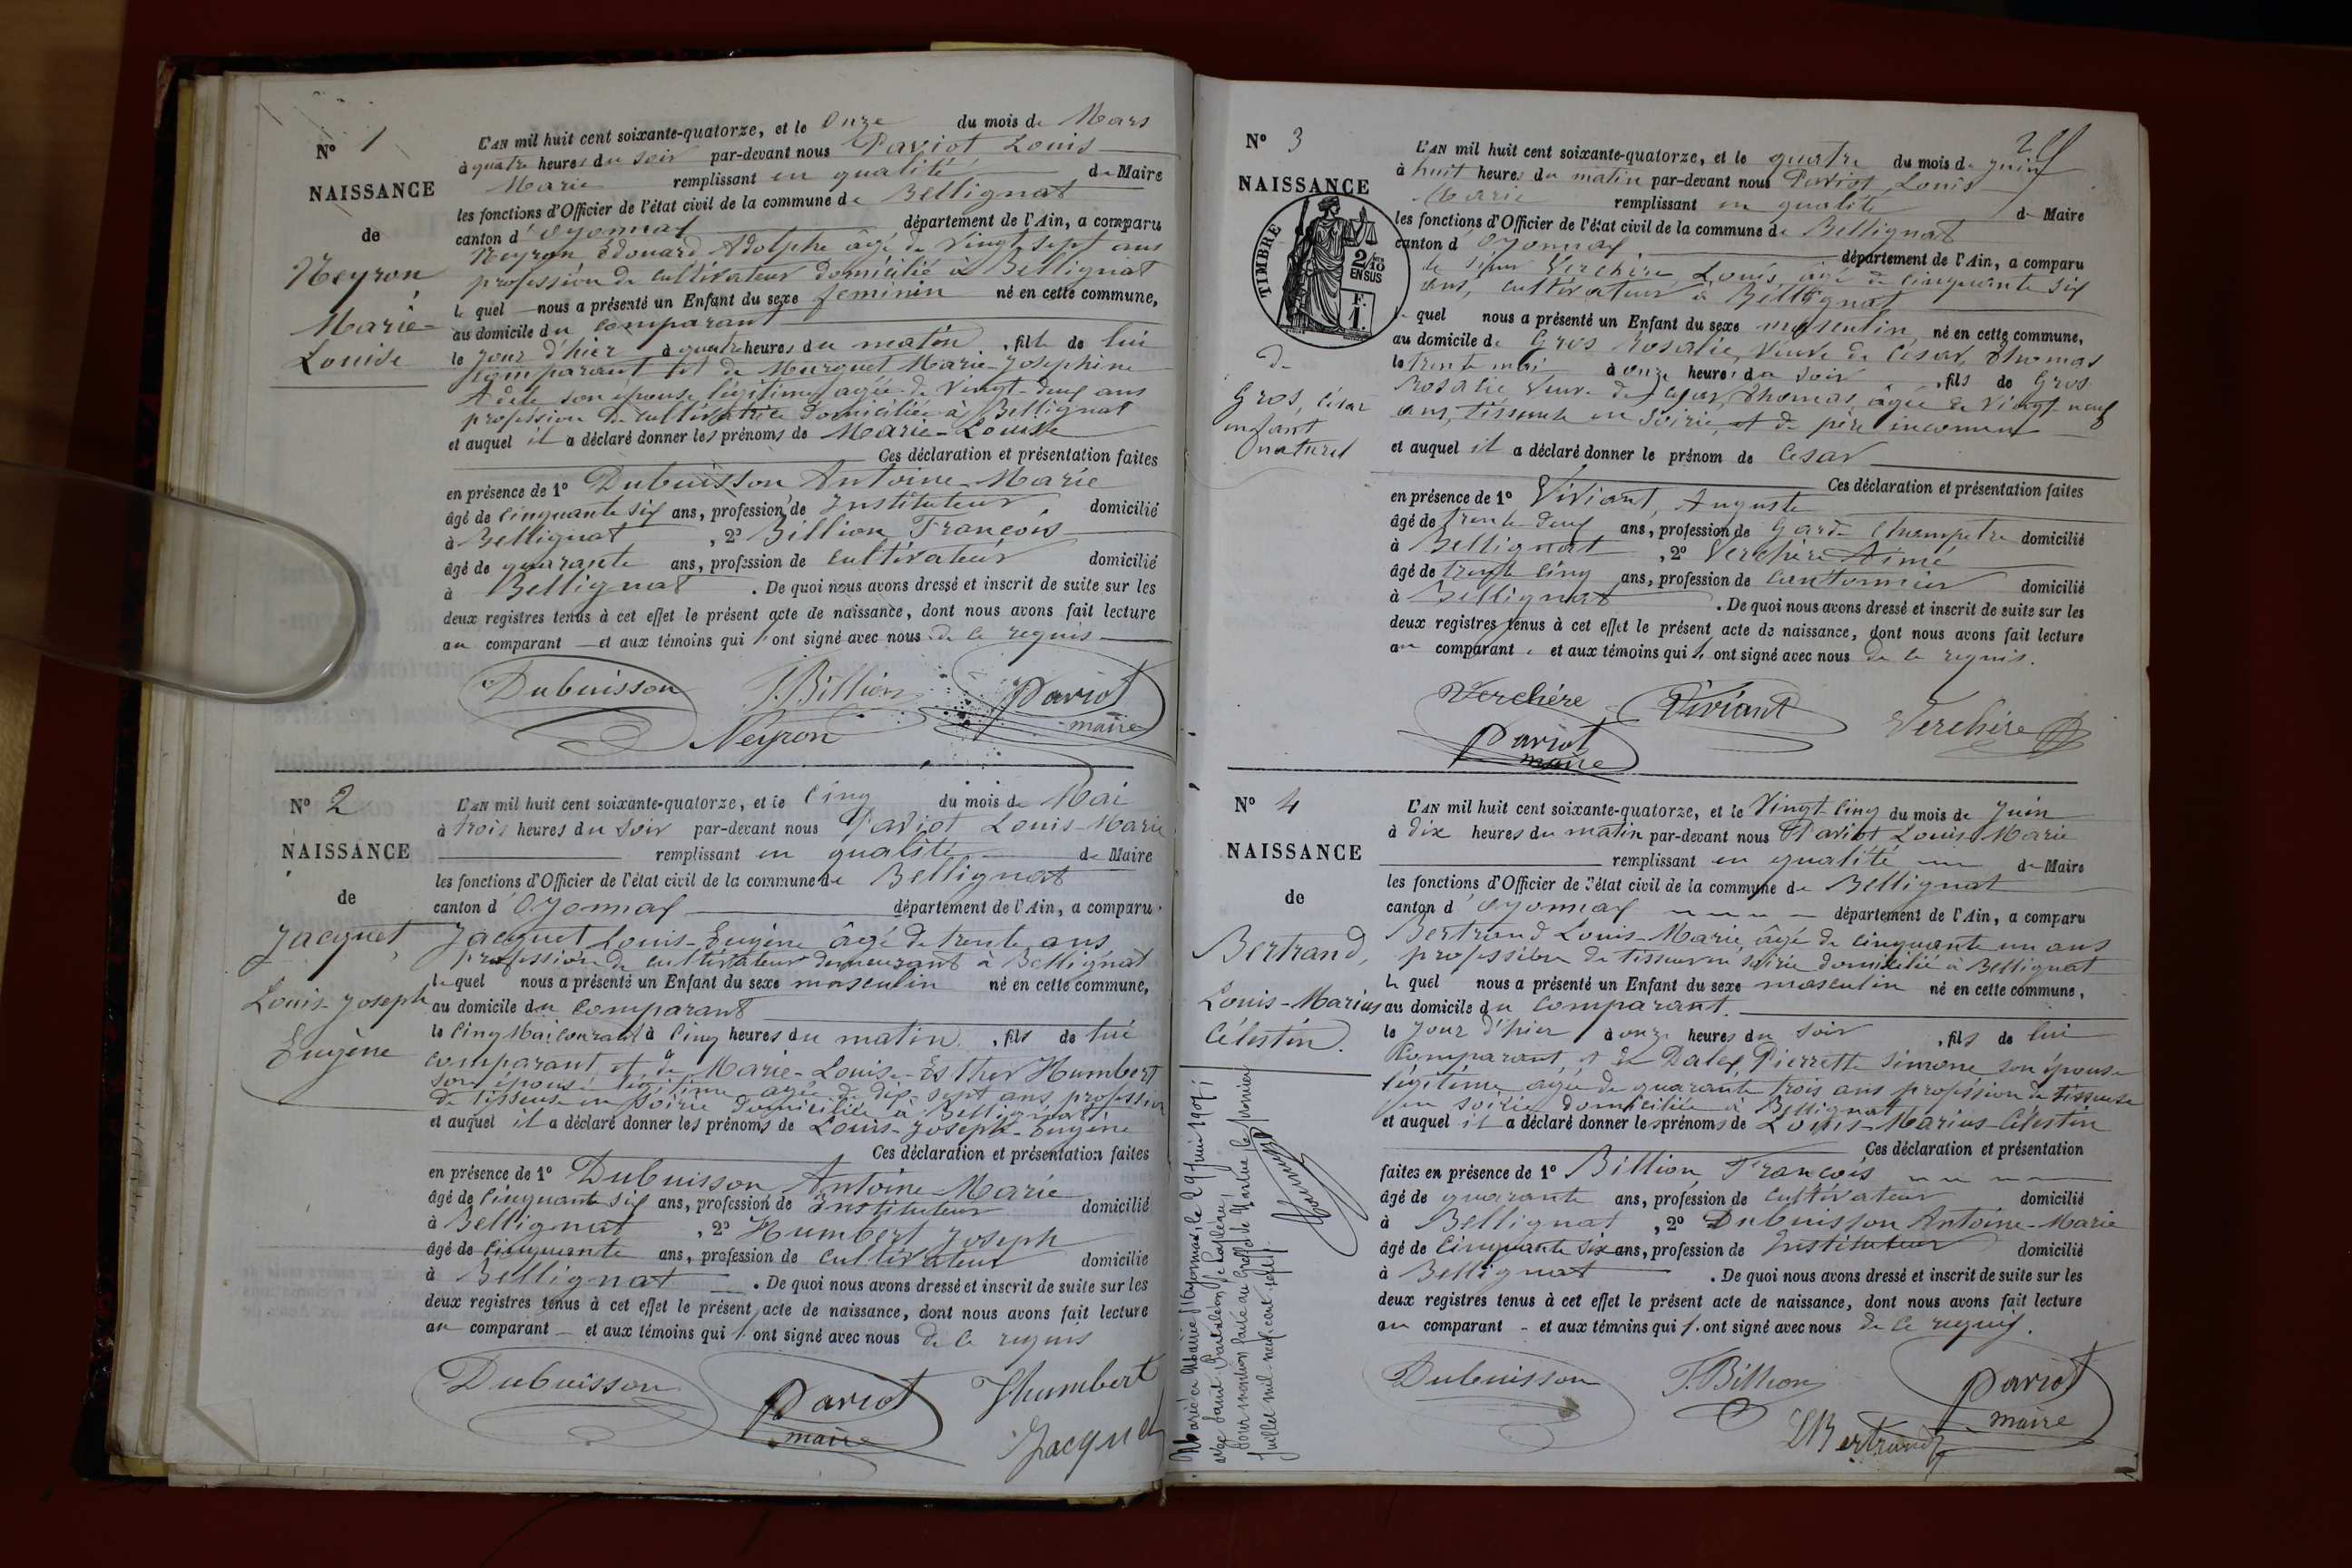 N° 1
NAISSANCE
de
Neyron,
Marie-
Louise
L'AN mil huit cent soixante-quatorze, et le Onze du mois de Mars
à quatre heures du soir par-devant nous Pariot Louis
Marie remplissant en qualité de Maire
les fonctions d'Officier de l'état civil de la commune de Bellignat
canton d'Oyonnax département de l'Ain, a comparu
Neyron Edouard Adolphe âgé de vingt sept ans
profession de cultivateur domicilié à Bellignat
lequel nous a présenté un Enfant du sexe féminin né en cette commune,
au domicile du comparant
le jour d'hier à quatre heures du matin, fille de lui
comparant et de Murguet Marie-Josephine
Adèle son épouse légitime agée de vingt-deux ans
profession de cultivatrice domiciliée à Bellignat
et auquel il a déclaré donner les prénoms de Marie-Louise
Ces déclaration et présentation faites
en présence de 1° Dubuisson Antoine-Marie
âgé de cinquante six ans, profession de Instituteur domicilié
à Bellignat, 2° Billion François
âgé de quarante ans, profession de cultivateur domicilié
à Bellignat. De quoi nous avons dressé et inscrit de suite sur les
deux registres tenus à cet effet le présent acte de naissance, dont nous avons fait lecture
au comparant et aux témoins qui ont signé avec nous de ce requis
Dubuisson F. Billion Pariot
Neyron maire
N° 2
NAISSANCE
de
Jacquet,
Louis-Joseph
Eugène
L'AN mil huit cent soixante-quatorze, et le cinq du mois de Mai
à trois heures du soir par-devant nous Pariot Louis-Marie
remplissant en qualité de Maire
les fonctions d'Officier de l'état civil de la commune de Bellignat
canton d'Oyonnax département de l'Ain, a comparu
Jacquet Louis-Eugène âgé de trente ans
profession de cultivateur demeurant à Bellignat
lequel nous a présenté un Enfant du sexe masculin né en cette commune,
au domicile du comparant
le cinq Mai courant à cinq heures du matin, fils de lui
comparant et de Marie-Louise-Esther Humbert
son épouse légitime agée de dix-sept ans profession
de tisseuse en soirie domiciliée à Bellignat
et auquel il a déclaré donner les prénoms de Louis-Joseph-Eugène
Ces déclaration et présentation faites
en présence de 1° Dubuisson Antoine-Marie
âgé de cinquante six ans, profession de Instituteur domicilié
à Bellignat, 2° Humbert Joseph
âgé de cinquante ans, profession de cultivateur domicilié
à Bellignat. De quoi nous avons dressé et inscrit de suite sur les
deux registres tenus à cet effet le présent acte de naissance, dont nous avons fait lecture
au comparant et aux témoins qui ont signé avec nous de ce requis
Dubuisson Pariot Jhumbert
maire Jacquet
N° 3
NAISSANCE
TIMBRE
2/10
EN SUS
F.
1.
de
Gros, César
enfant
naturel
L'AN mil huit cent soixante-quatorze, et le quatre du mois de Juin
à huit heures du matin par-devant nous Pariot Louis
Marie remplissant en qualité de Maire
les fonctions d'Officier de l'état civil de la commune de Bellignat
canton d'Oyonnax département de l'Ain, a comparu
le sieur Verchère Louis, agé de cinquante six
ans, cultivateur à Bellignat
lequel nous a présenté un Enfant du sexe masculin, né en cette commune,
au domicile de Gros Rosalie, veuve de César Thomas
le trente mai à onze heures du soir, fils de Gros
Rosalie veuve de César Thomas, agée de vingt-neuf
ans, tisseuse en soirie, et de père inconnu
et auquel il a déclaré donner le prénom de Cesar
Ces déclaration et présentation faites
en présence de 1° Viviant, Auguste
âgé de trente deux ans, profession de Garde Champetre domicilié
à Bellignat, 2° Verchère Aimé
âgé de trente cinq ans, profession de cantonnier domicilié
à Bellignat. De quoi nous avons dressé et inscrit de suite sur les
deux registres tenus à cet effet le présent acte de naissance, dont nous avons fait lecture
au comparant et aux témoins qui ont signé avec nous de ce requis.
Verchère Viviant Verchère
Pariot
maire
N° 4
NAISSANCE
de
Bertrand,
Louis-Marius
Célestin.
L'AN mil huit cent soixante-quatorze, et le vingt-cinq du mois de Juin
à dix heures du matin par-devant nous Pariot Louis-Marie
remplissant en qualité de Maire
les fonctions d'Officier de l'état civil de la commune de Bellignat
canton d'Oyonnax département de l'Ain, a comparu
Bertrand Louis-Marie, âgé de cinquante un ans
profession de tisseur en soirie domicilié à Bellignat
lequel nous a présenté un Enfant du sexe masculin né en cette commune,
au domicile du comparant.
le jour d'hier à onze heures du soir, fils de lui
comparant, et de Dalex Pierrette Simone son épouse
légitime agée de quarante trois ans profession de tisseuse
en soirie domiciliée à Bellignat
et auquel il a déclaré donner les prénoms de Louis-Marius-Célestin
Ces déclaration et présentation
faites en présence de 1° Billion François
âgé de quarante ans, profession de cultivateur domicilié
à Bellignat, 2° Dubuisson Antoine-Marie
âgé de cinquante six ans, profession de Instituteur domicilié
à Bellignat. De quoi nous avons dressé et inscrit de suite sur les
deux registres tenus à cet effet le présent acte de naissance, dont nous avons fait lecture
au comparant et aux témoins qui ont signé avec nous de ce requis.
Dubuisson F. Billion Pariot
LBertrand maire
Marié à la Mairie d'Oyonnax le 29 Juin 1907
avec
Pour mention faite au Greffe de Nantua le premier
Juillet mil neuf cent sept.